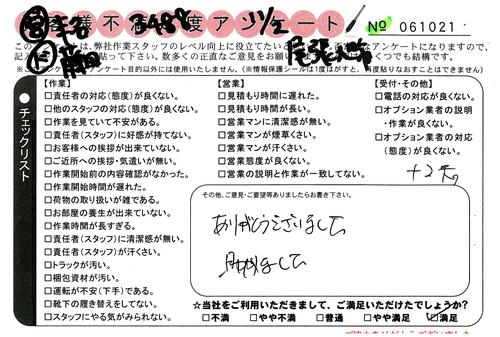 お客様不満足度アンケート
No 061021
このアンケートは、弊社作業スタッフのレベル向上に役立てたい
尾張
※ご
ンケート目的以外には使用いたしません。(※情報保護シールは1度はがすと、再度貼りなおすことはできません
チェックリスト
【作業】
□責任者の対応(態度)が良くない。
□他のスタッフの対応(態度)が良くない。
□作業を見ていて不安がある。
□責任者(スタッフ)に好感が持てない。
□お客様への挨拶が出来ていない。
□ご近所への挨拶・気遣いが無い。
□作業開始前の内容確認がなかった。
□作業開始時間が遅れた。
□荷物の取り扱いが雑である。
□お部屋の養生が出来ていない。
□作業時間が長すぎる。
□責任者(スタッフ)に清潔感が無い。
□責任者(スタッフ)が汗くさい。
□トラックが汚い。
□梱包資材が汚い。
□運転が不安(下手)である。
□靴下の履き替えをしてない。
□スタッフにやる気がみられない。
【営業】
□見積もり時間に遅れた。
□見積もり時間が長い。
□営業マンに清潔感が無い。
□営業マンが煙草くさい。
□営業マンが汗くさい。
□営業態度が良くない。
□営業の説明と作業が一致してない。
【受付・その他】
□電話の対応が良くない。
□オプション業者の説明
・作業が良くない。
□オプション業者の対応
(態度)が良くない。
その他、ご意見・ご要望等ありましたらお書き下さい。
ありがとうございました
☆当社をご利用いただきまして、ご満足いただけたでしょうか?
□不満 □やや不満 □普通 □やや満足 ☑満足